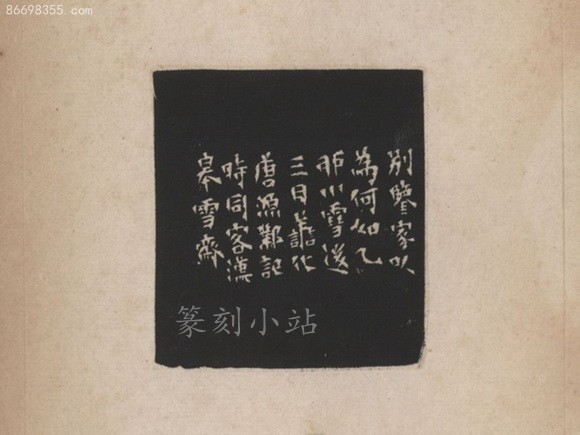 86698355.com
別鑒家以
為何如乙
卯小雪後
三日譱化
唐源鄴記
時同客漢
皋雪齋
篆刻小站